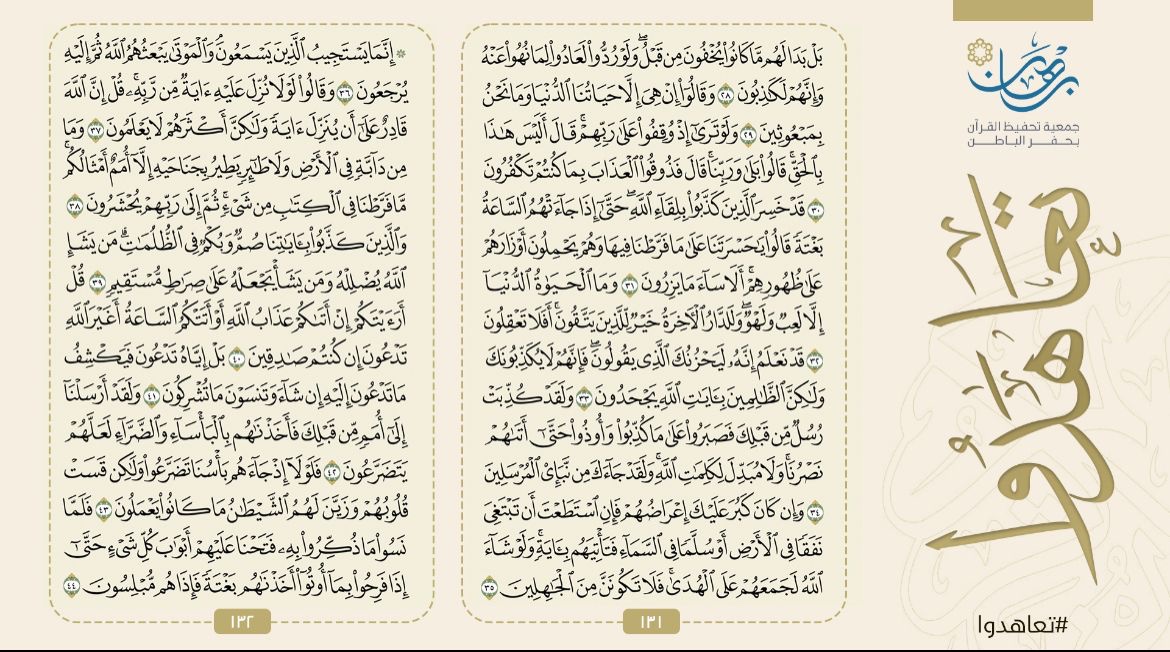 برهان
جمعية تحفيظ القرآن
بحفر الباطن
تعاهدوا
#تعاهدوا
بَلْ بَدَا لَهُم مَّا كَانُوا۟ يُخْفُونَ مِن قَبْلُ ۖ وَلَوْ رُدُّوا۟ لَعَادُوا۟ لِمَا نُهُوا۟ عَنْهُ
وَإِنَّهُمْ لَكَـٰذِبُونَ ٢٨ وَقَالُوٓا۟ إِنْ هِىَ إِلَّا حَيَاتُنَا ٱلدُّنْيَا وَمَا نَحْنُ
بِمَبْعُوثِينَ ٢٩ وَلَوْ تَرَىٰٓ إِذْ وُقِفُوا۟ عَلَىٰ رَبِّهِمْ ۚ قَالَ أَلَيْسَ هَـٰذَا
بِٱلْحَقِّ ۚ قَالُوا۟ بَلَىٰ وَرَبِّنَا ۚ قَالَ فَذُوقُوا۟ ٱلْعَذَابَ بِمَا كُنتُمْ تَكْفُرُونَ
٣٠ قَدْ خَسِرَ ٱلَّذِينَ كَذَّبُوا۟ بِلِقَآءِ ٱللَّهِ ۖ حَتَّىٰٓ إِذَا جَآءَتْهُمُ ٱلسَّاعَةُ
بَغْتَةً قَالُوا۟ يَـٰحَسْرَتَنَا عَلَىٰ مَا فَرَّطْنَا فِيهَا وَهُمْ يَحْمِلُونَ أَوْزَارَهُمْ
عَلَىٰ ظُهُورِهِمْ ۚ أَلَا سَآءَ مَا يَزِرُونَ ٣١ وَمَا ٱلْحَيَوٰةُ ٱلدُّنْيَآ
إِلَّا لَعِبٌ وَلَهْوٌ ۖ وَلَلدَّارُ ٱلْـَٔاخِرَةُ خَيْرٌ لِّلَّذِينَ يَتَّقُونَ ۗ أَفَلَا تَعْقِلُونَ
٣٢ قَدْ نَعْلَمُ إِنَّهُۥ لَيَحْزُنُكَ ٱلَّذِى يَقُولُونَ ۖ فَإِنَّهُمْ لَا يُكَذِّبُونَكَ
وَلَـٰكِنَّ ٱلظَّـٰلِمِينَ بِـَٔايَـٰتِ ٱللَّهِ يَجْحَدُونَ ٣٣ وَلَقَدْ كُذِّبَتْ
رُسُلٌ مِّن قَبْلِكَ فَصَبَرُوا۟ عَلَىٰ مَا كُذِّبُوا۟ وَأُوذُوا۟ حَتَّىٰٓ أَتَىٰهُمْ
نَصْرُنَا ۚ وَلَا مُبَدِّلَ لِكَلِمَـٰتِ ٱللَّهِ ۚ وَلَقَدْ جَآءَكَ مِن نَّبَإِى۟ ٱلْمُرْسَلِينَ
٣٤ وَإِن كَانَ كَبُرَ عَلَيْكَ إِعْرَاضُهُمْ فَإِنِ ٱسْتَطَعْتَ أَن تَبْتَغِىَ
نَفَقًا فِى ٱلْأَرْضِ أَوْ سُلَّمًا فِى ٱلسَّمَآءِ فَتَأْتِيَهُم بِـَٔايَةٍ ۚ وَلَوْ شَآءَ
ٱللَّهُ لَجَمَعَهُمْ عَلَى ٱلْهُدَىٰ ۚ فَلَا تَكُونَنَّ مِنَ ٱلْجَـٰهِلِينَ ٣٥
١٣١
۞ إِنَّمَا يَسْتَجِيبُ ٱلَّذِينَ يَسْمَعُونَ ۘ وَٱلْمَوْتَىٰ يَبْعَثُهُمُ ٱللَّهُ ثُمَّ إِلَيْهِ
يُرْجَعُونَ ٣٦ وَقَالُوا۟ لَوْلَا نُزِّلَ عَلَيْهِ ءَايَةٌ مِّن رَّبِّهِۦ ۚ قُلْ إِنَّ ٱللَّهَ
قَادِرٌ عَلَىٰٓ أَن يُنَزِّلَ ءَايَةً وَلَـٰكِنَّ أَكْثَرَهُمْ لَا يَعْلَمُونَ ٣٧ وَمَا
مِن دَآبَّةٍ فِى ٱلْأَرْضِ وَلَا طَـٰٓئِرٍ يَطِيرُ بِجَنَاحَيْهِ إِلَّآ أُمَمٌ أَمْثَالُكُم ۚ
مَّا فَرَّطْنَا فِى ٱلْكِتَـٰبِ مِن شَىْءٍ ۚ ثُمَّ إِلَىٰ رَبِّهِمْ يُحْشَرُونَ ٣٨
وَٱلَّذِينَ كَذَّبُوا۟ بِـَٔايَـٰتِنَا صُمٌّ وَبُكْمٌ فِى ٱلظُّلُمَـٰتِ ۗ مَن يَشَإِ
ٱللَّهُ يُضْلِلْهُ وَمَن يَشَأْ يَجْعَلْهُ عَلَىٰ صِرَٰطٍ مُّسْتَقِيمٍ ٣٩ قُلْ
أَرَءَيْتَكُمْ إِنْ أَتَىٰكُمْ عَذَابُ ٱللَّهِ أَوْ أَتَتْكُمُ ٱلسَّاعَةُ أَغَيْرَ ٱللَّهِ
تَدْعُونَ إِن كُنتُمْ صَـٰدِقِينَ ٤٠ بَلْ إِيَّاهُ تَدْعُونَ فَيَكْشِفُ
مَا تَدْعُونَ إِلَيْهِ إِن شَآءَ وَتَنسَوْنَ مَا تُشْرِكُونَ ٤١ وَلَقَدْ أَرْسَلْنَآ
إِلَىٰٓ أُمَمٍ مِّن قَبْلِكَ فَأَخَذْنَـٰهُم بِٱلْبَأْسَآءِ وَٱلضَّرَّآءِ لَعَلَّهُمْ
يَتَضَرَّعُونَ ٤٢ فَلَوْلَآ إِذْ جَآءَهُم بَأْسُنَا تَضَرَّعُوا۟ وَلَـٰكِن قَسَتْ
قُلُوبُهُمْ وَزَيَّنَ لَهُمُ ٱلشَّيْطَـٰنُ مَا كَانُوا۟ يَعْمَلُونَ ٤٣ فَلَمَّا
نَسُوا۟ مَا ذُكِّرُوا۟ بِهِۦ فَتَحْنَا عَلَيْهِمْ أَبْوَٰبَ كُلِّ شَىْءٍ حَتَّىٰٓ
إِذَا فَرِحُوا۟ بِمَآ أُوتُوٓا۟ أَخَذْنَـٰهُم بَغْتَةً فَإِذَا هُم مُّبْلِسُونَ ٤٤
١٣٢